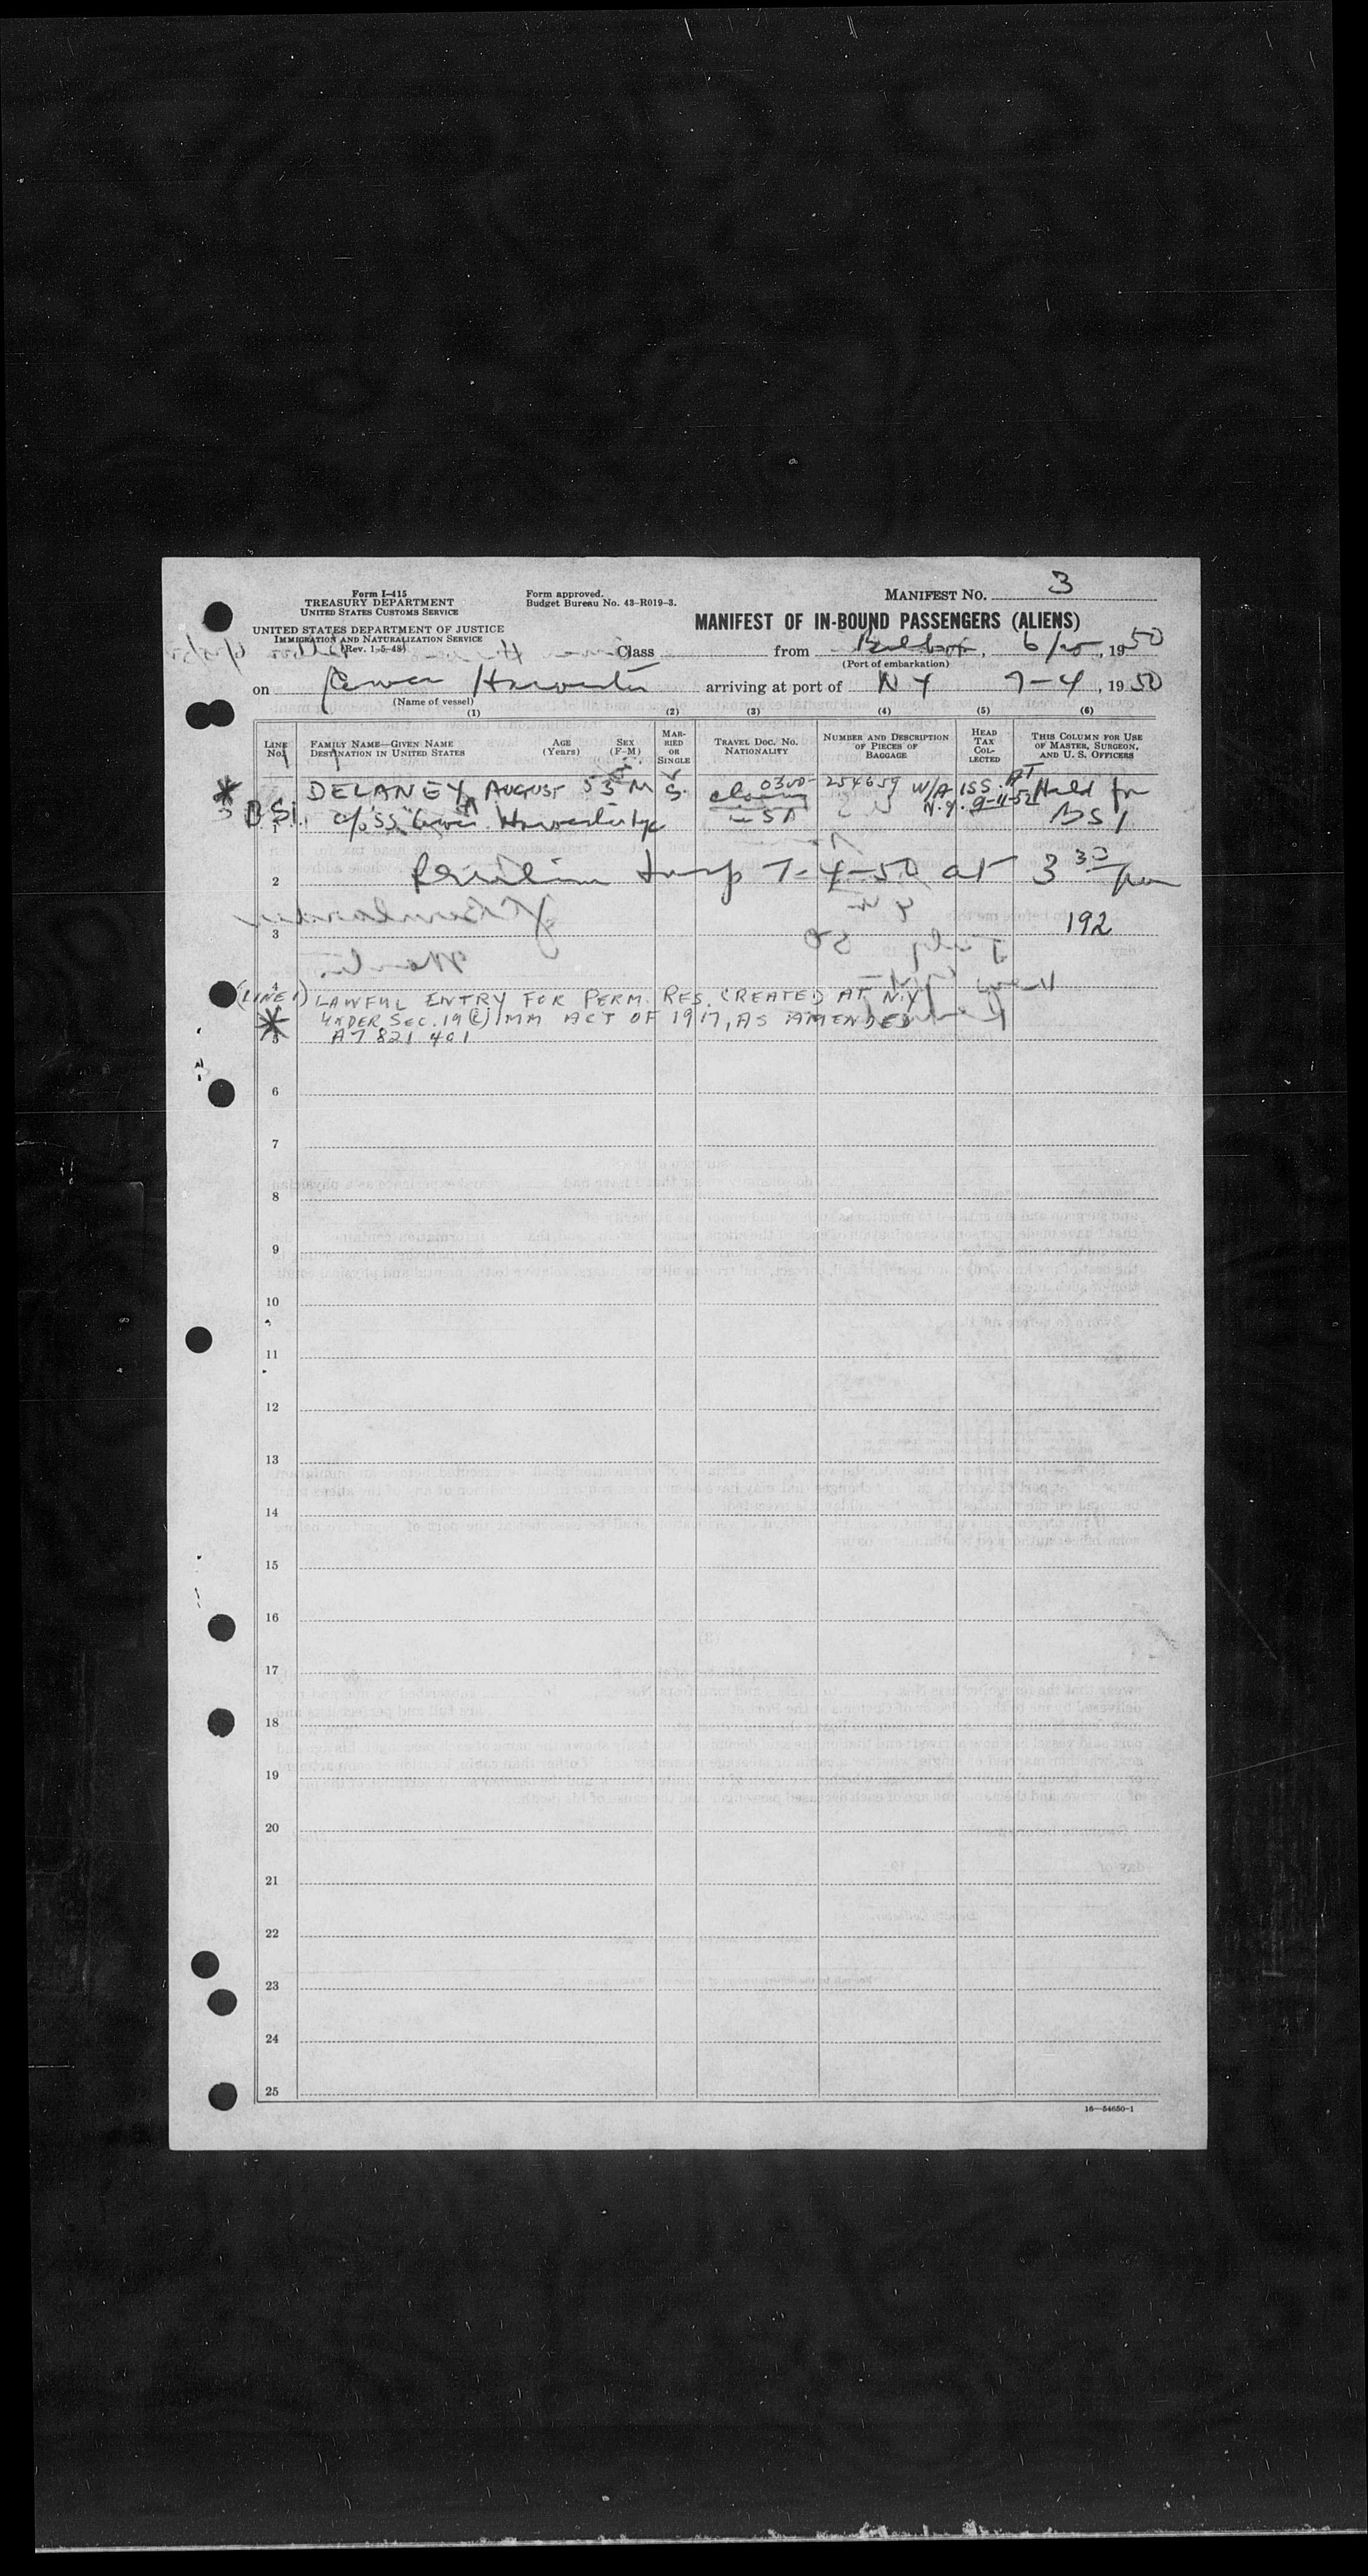 Form I-415
TREASURY DEPARTMENT
UNITED STATES CUSTOMS SERVICE
UNITED STATES DEPARTMENT OF JUSTICE
IMMIGRATION AND NATURALIZATION SERVICE
(Rev. 1-5-48)
Form approved.
Budget Bureau No. 43-R019-3.
MANIFEST NO. 3
MANIFEST OF IN-BOUND PASSENGERS (ALIENS)
Class from Balboa, 6/25, 1950
(Port of embarkation)
on Harvester arriving at port of NY 7-4, 1950
(Name of vessel)
(1) (2) (3) (4) (5) (6)
LINE No. FAMILY NAME—GIVEN NAME DESTINATION IN UNITED STATES AGE (Years) SEX (F-M) MARRIED OR SINGLE TRAVEL DOC. NO. NATIONALITY NUMBER AND DESCRIPTION OF PIECES OF BAGGAGE HEAD TAX COLLECTED THIS COLUMN FOR USE OF MASTER, SURGEON, AND U. S. OFFICERS
DELANEY, AUGUST 53 M S. 0300- 254659 W/A ISS. AT Held for
BSI. c/o SS Harvester N.Y. 9-11-52 BSI
1
2 7-4-50 at 3 30 pm
3 192
4
(LINE 1) LAWFUL ENTRY FOR PERM. RES. CREATED AT N.Y
UNDER SEC. 19(c) IMM ACT OF 1917, AS AMENDED
5 A7 821 401
6
7
8
9
10
11
12
13
14
15
16
17
18
19
20
21
22
23
24
25
16—54650-1